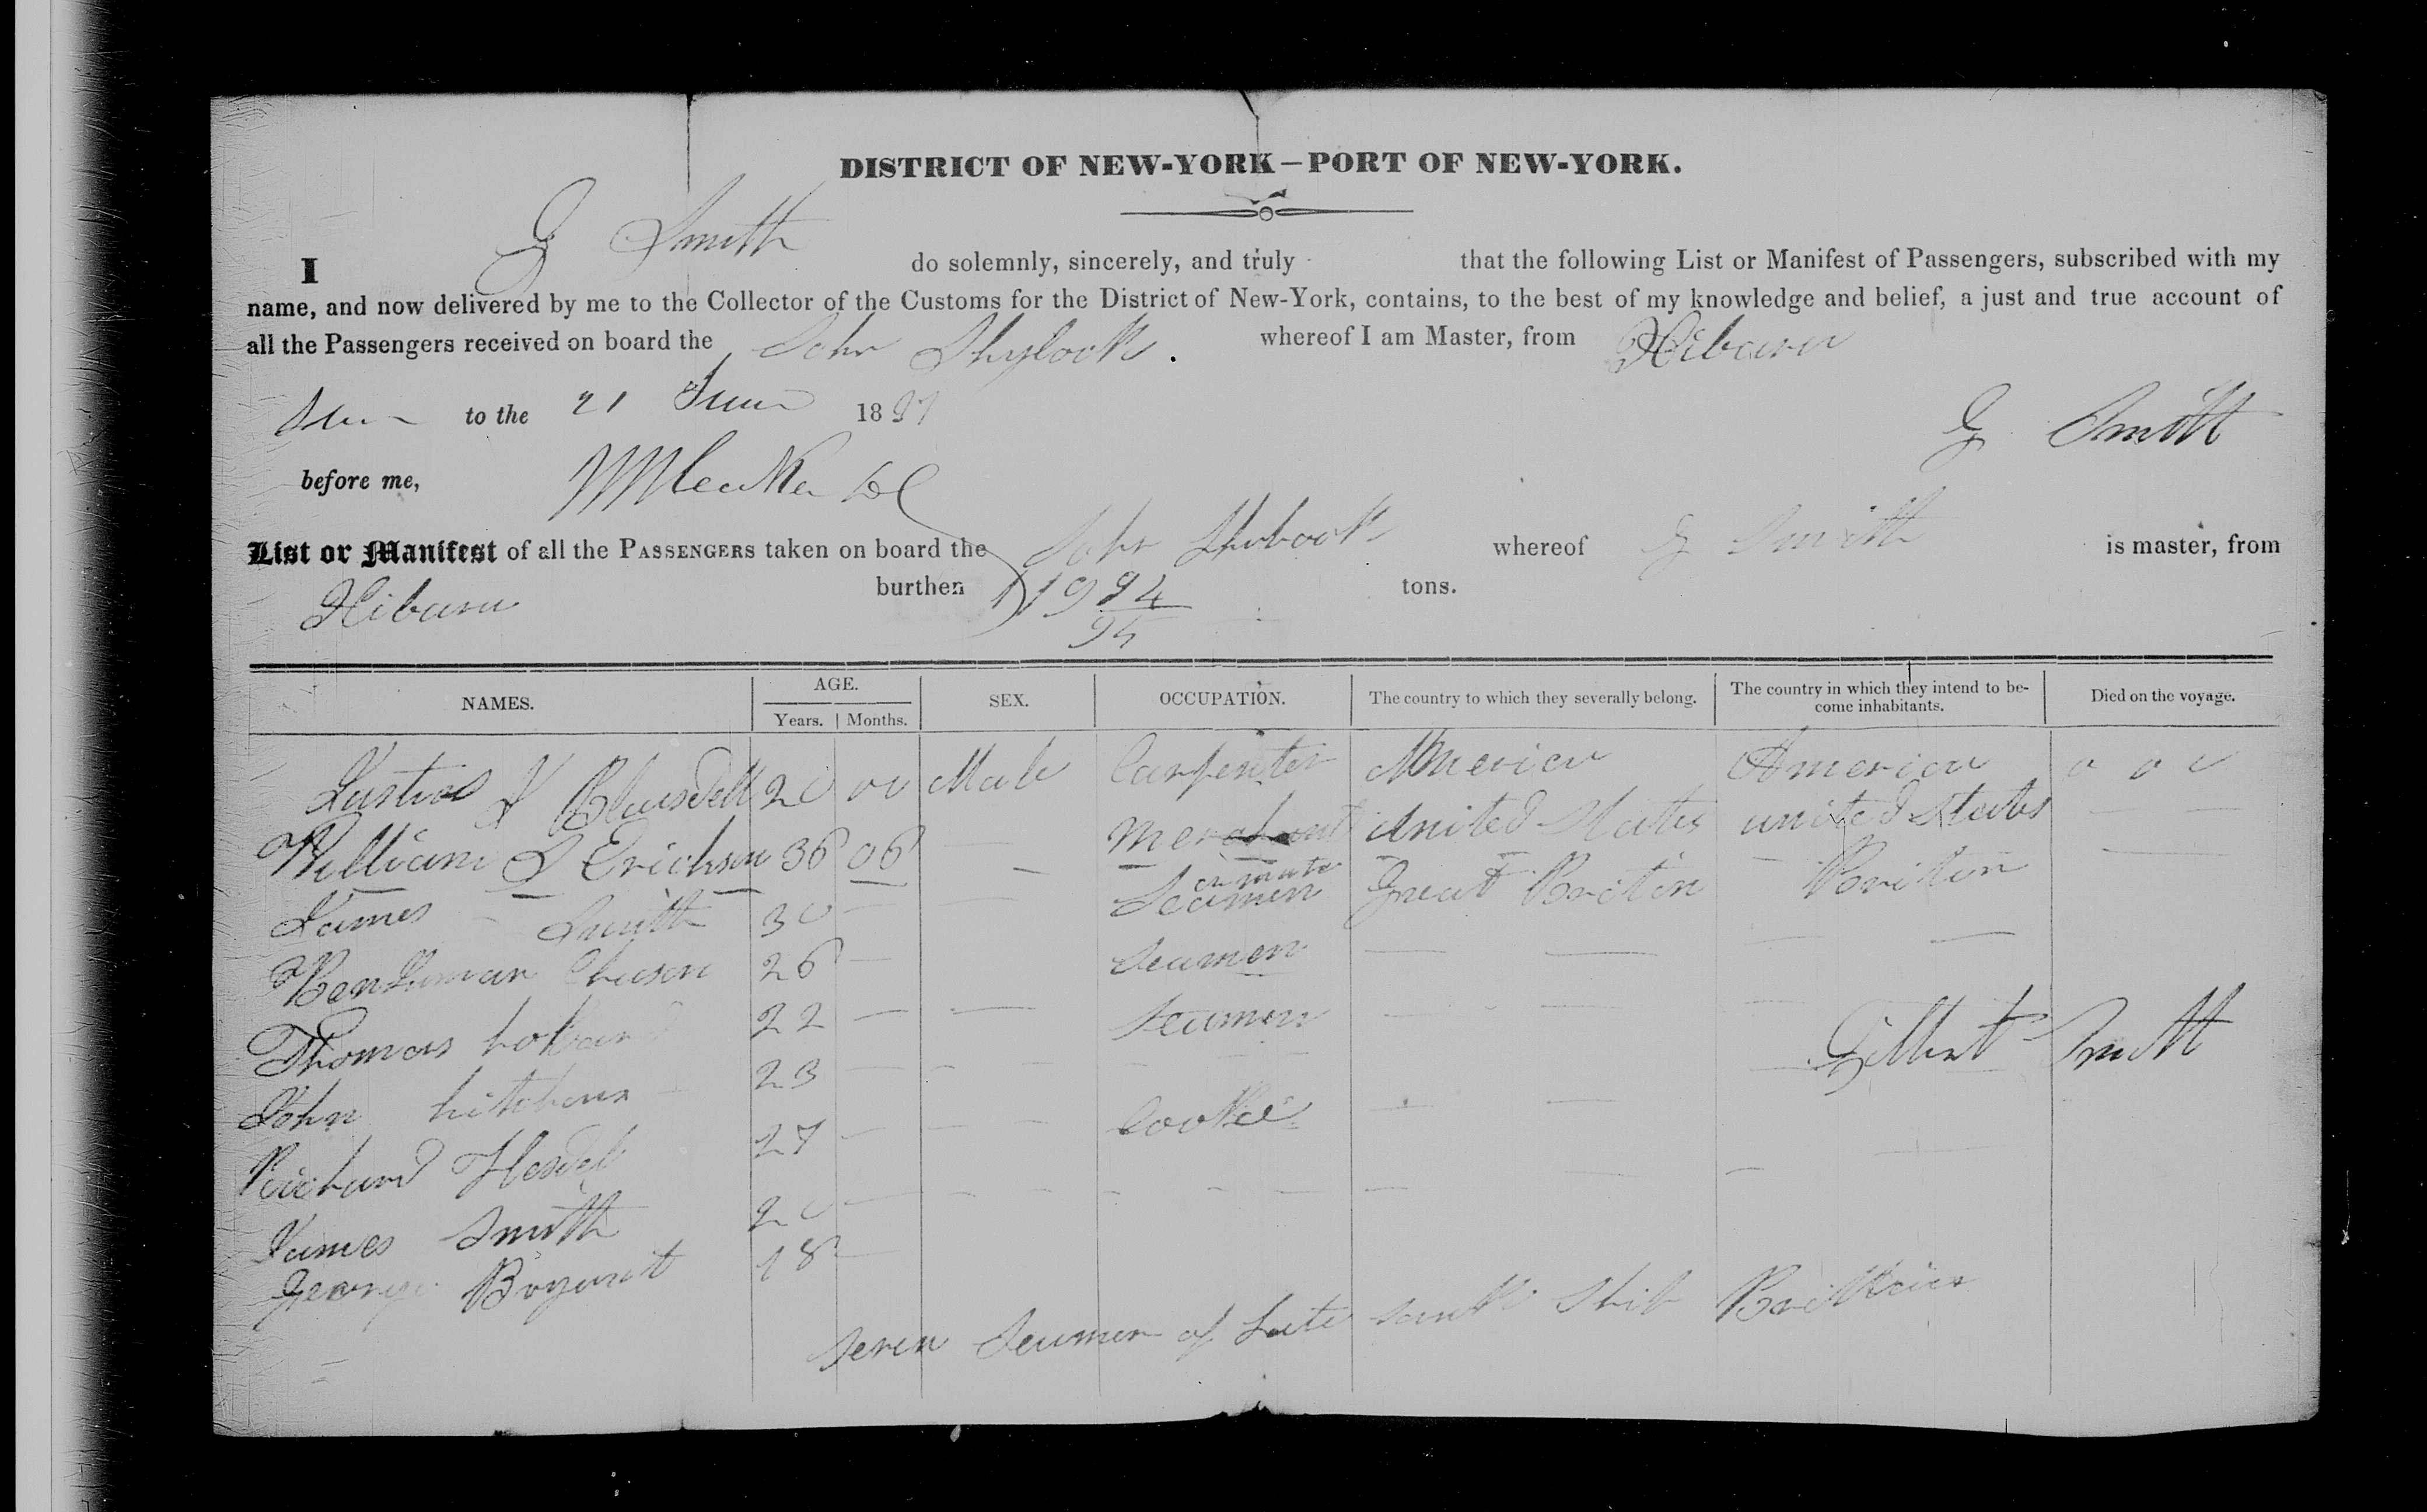 DISTRICT OF NEW-YORK—PORT OF NEW-YORK.
I G Smith do solemnly, sincerely, and truly that the following List or Manifest of Passengers, subscribed with my
name, and now delivered by me to the Collector of the Customs for the District of New-York, contains, to the best of my knowledge and belief, a just and true account of
all the Passengers received on board the Schr Shylook. whereof I am Master, from Hibara
to the 21 June 1837
G Smith
before me,
List or Manifest of all the PASSENGERS taken on board the Schr whereof G Smith is master, from
Hibara burthen tons.
NAMES. AGE. Years. Months. SEX. OCCUPATION. The country to which they severally belong. The country in which they intend to become inhabitants. Died on the voyage.
Blaisdell 20 00 Male Carpenter America America 0 0 0
William Erickson 36 06 — Merchant United States united States — —
James Smith 30 — — Seamen Great Britin Britin
26 — Seamen — — — —
Thomas 22 — — Seamen — — —
Gilbert Smith
John hitchens 23 — — —
Richard 27 — — — Cookee — —
James Smith 20 —
George 18 —
Seven Seamen of Late Ship